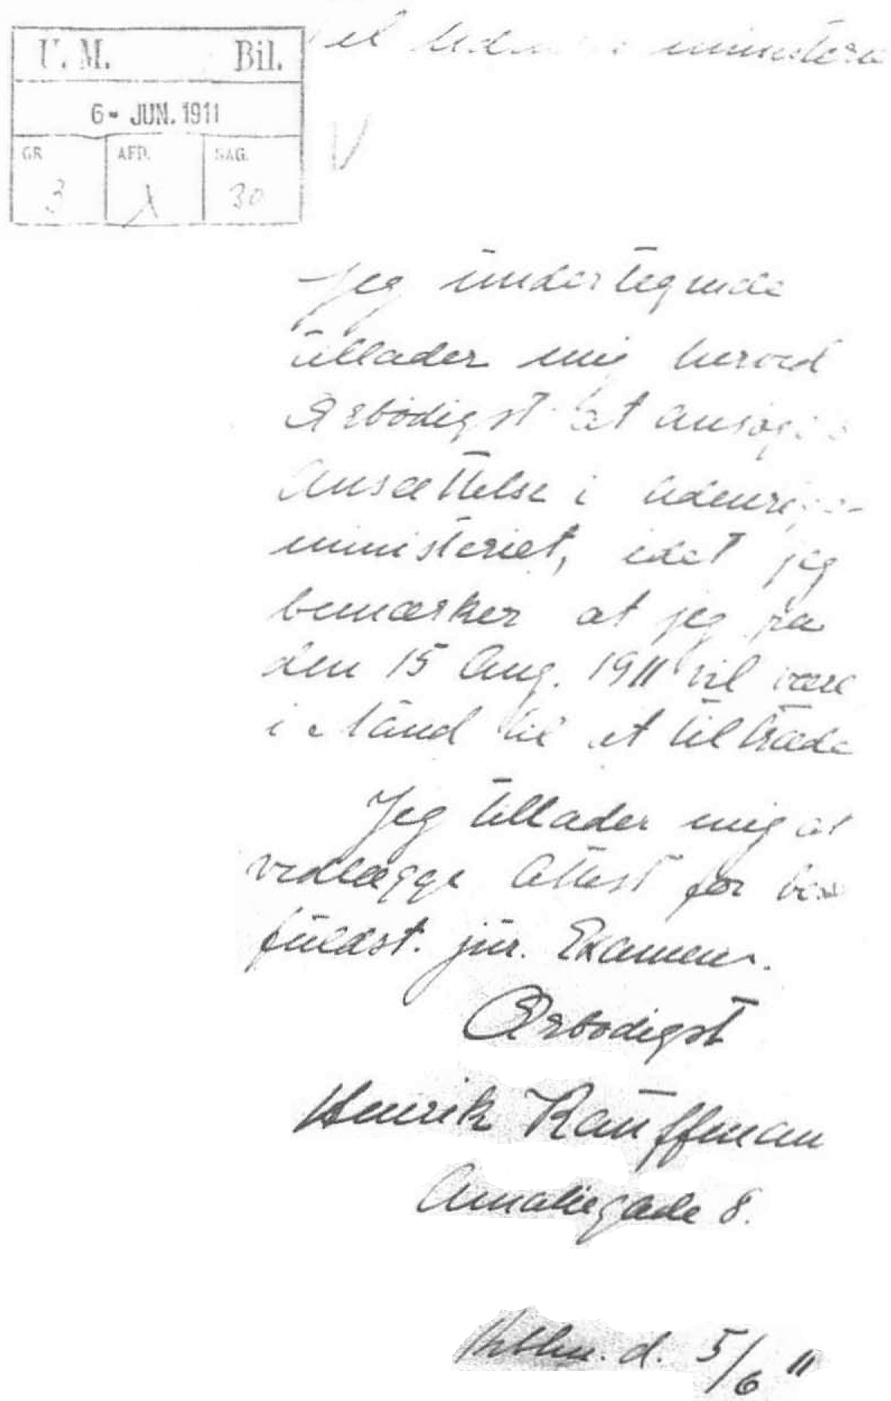 U. M. Bil.
6- JUN. 1911
GR. AFD. SAG.
3 1 30
Til
V
Jeg undertegnede
tillader mig herved
Ærbödigst at
Ansættelse i Udenrigs-
ministeriet, idet jeg
bemærker at jeg fra
den 15 Aug. 1911 vil være
i Stand til at tiltræde
Jeg tillader mig at
vedlægge Attest for
fuldst. jur. Examen.
Ærbödigst
Henrik Kauffmann
Amaliegade 8.
Kbhn. d. 5/6 11